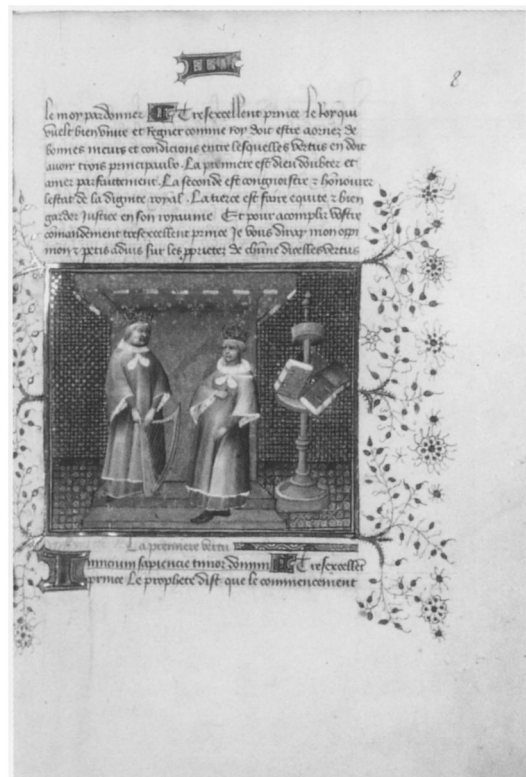 8
le moy pardonner Et Tresexcellent prince le Roy qui
vuelt bien viure et Regner comme roy doit estre aornez de
bonnes meurs et condicions entre lesquelles vertus en doit
auoir trois principaulx. La premiere est dieu doubter et
amer parfaitement. La seconde est congnoistre z honnourer
lestat de la dignite royal. La tierce est faire equite z bien
garder Justice en son royaume Et pour acomplir vostre
comandement tresexcellent prince Je vous diray mon oppi
mon z petis aduis sur les pprietez de chune dicelles vertus
La premiere vertu
Inicium sapiencie timor domini Tresexcellent
prince Le prophete dist que le commencement